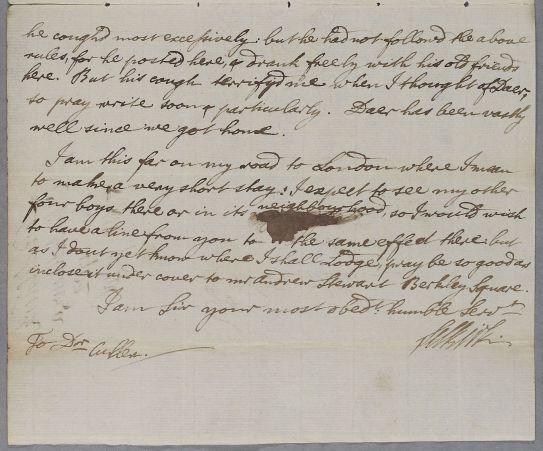 he cough'd most excessively: but he had not follow'd the above
rules, for he posted here, & drank freely with his old friends
here. But his cough terrify'd me when I thought of Daer,
so pray write soon & particularly. Daer has been vastly
well since we got home.
I am this far on my road to London where I mean
to make a very short stay: I expect to see my other
four boys there or in its neighbourhood, so I would wish
to have a line from you to the same effect there: but
as I dont yet know where I shall Lodge, pray be so good as
inclose it under cover to mr Andrew Stewart Berkley Square.
I am Sir your most obedt. humble Servt
To Dr. Cullen.